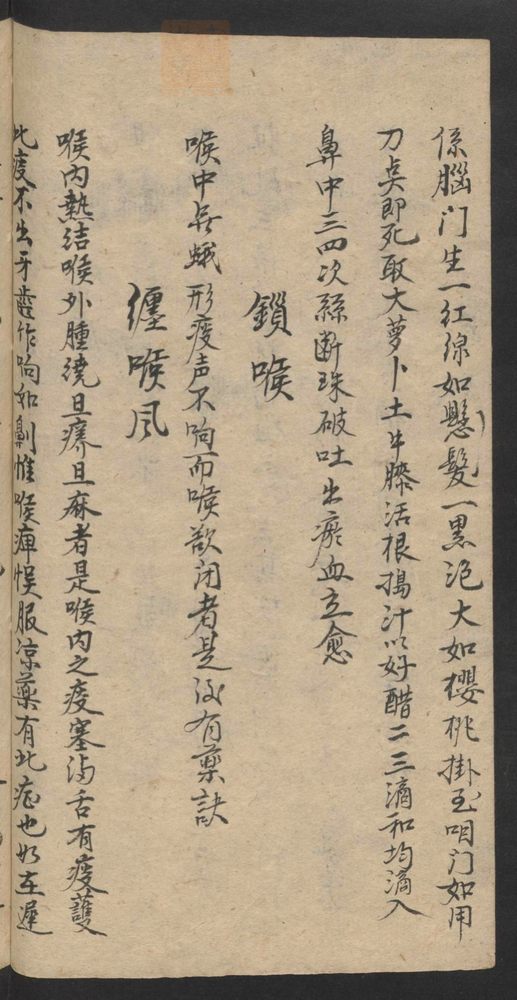 係腦门生一红線如懸髮一黑泡大如櫻桃掛至咽门如用
刀点即死取大萝卜土牛膝活根搗汁以好醋二三滴和均滴入
鼻中三四次絲断珠破吐出瘀血立愈
鎖喉
喉中無蛾形痰声不响而喉欲闭者是後有藥訣
纏喉风
喉内热结喉外腫绕且痒且麻者是喉内之痰塞满舌有痰護
此痰不出牙齒作响如鼾惟喉痺悮服凉藥有此症也如在遲